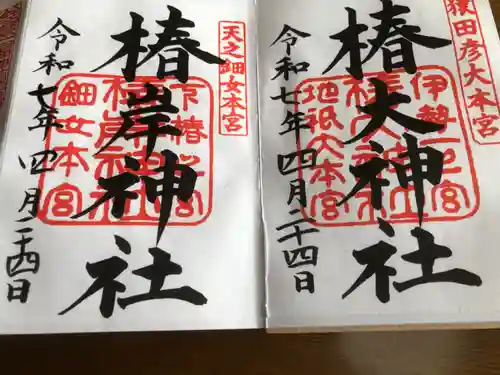 猿田彦大本宮
椿大神社
伊勢一の宮
地祇大本宮
令和七年四月二十四日
天之鈿女本宮
椿岸神社
鈿女本宮
令和七年四月二十四日